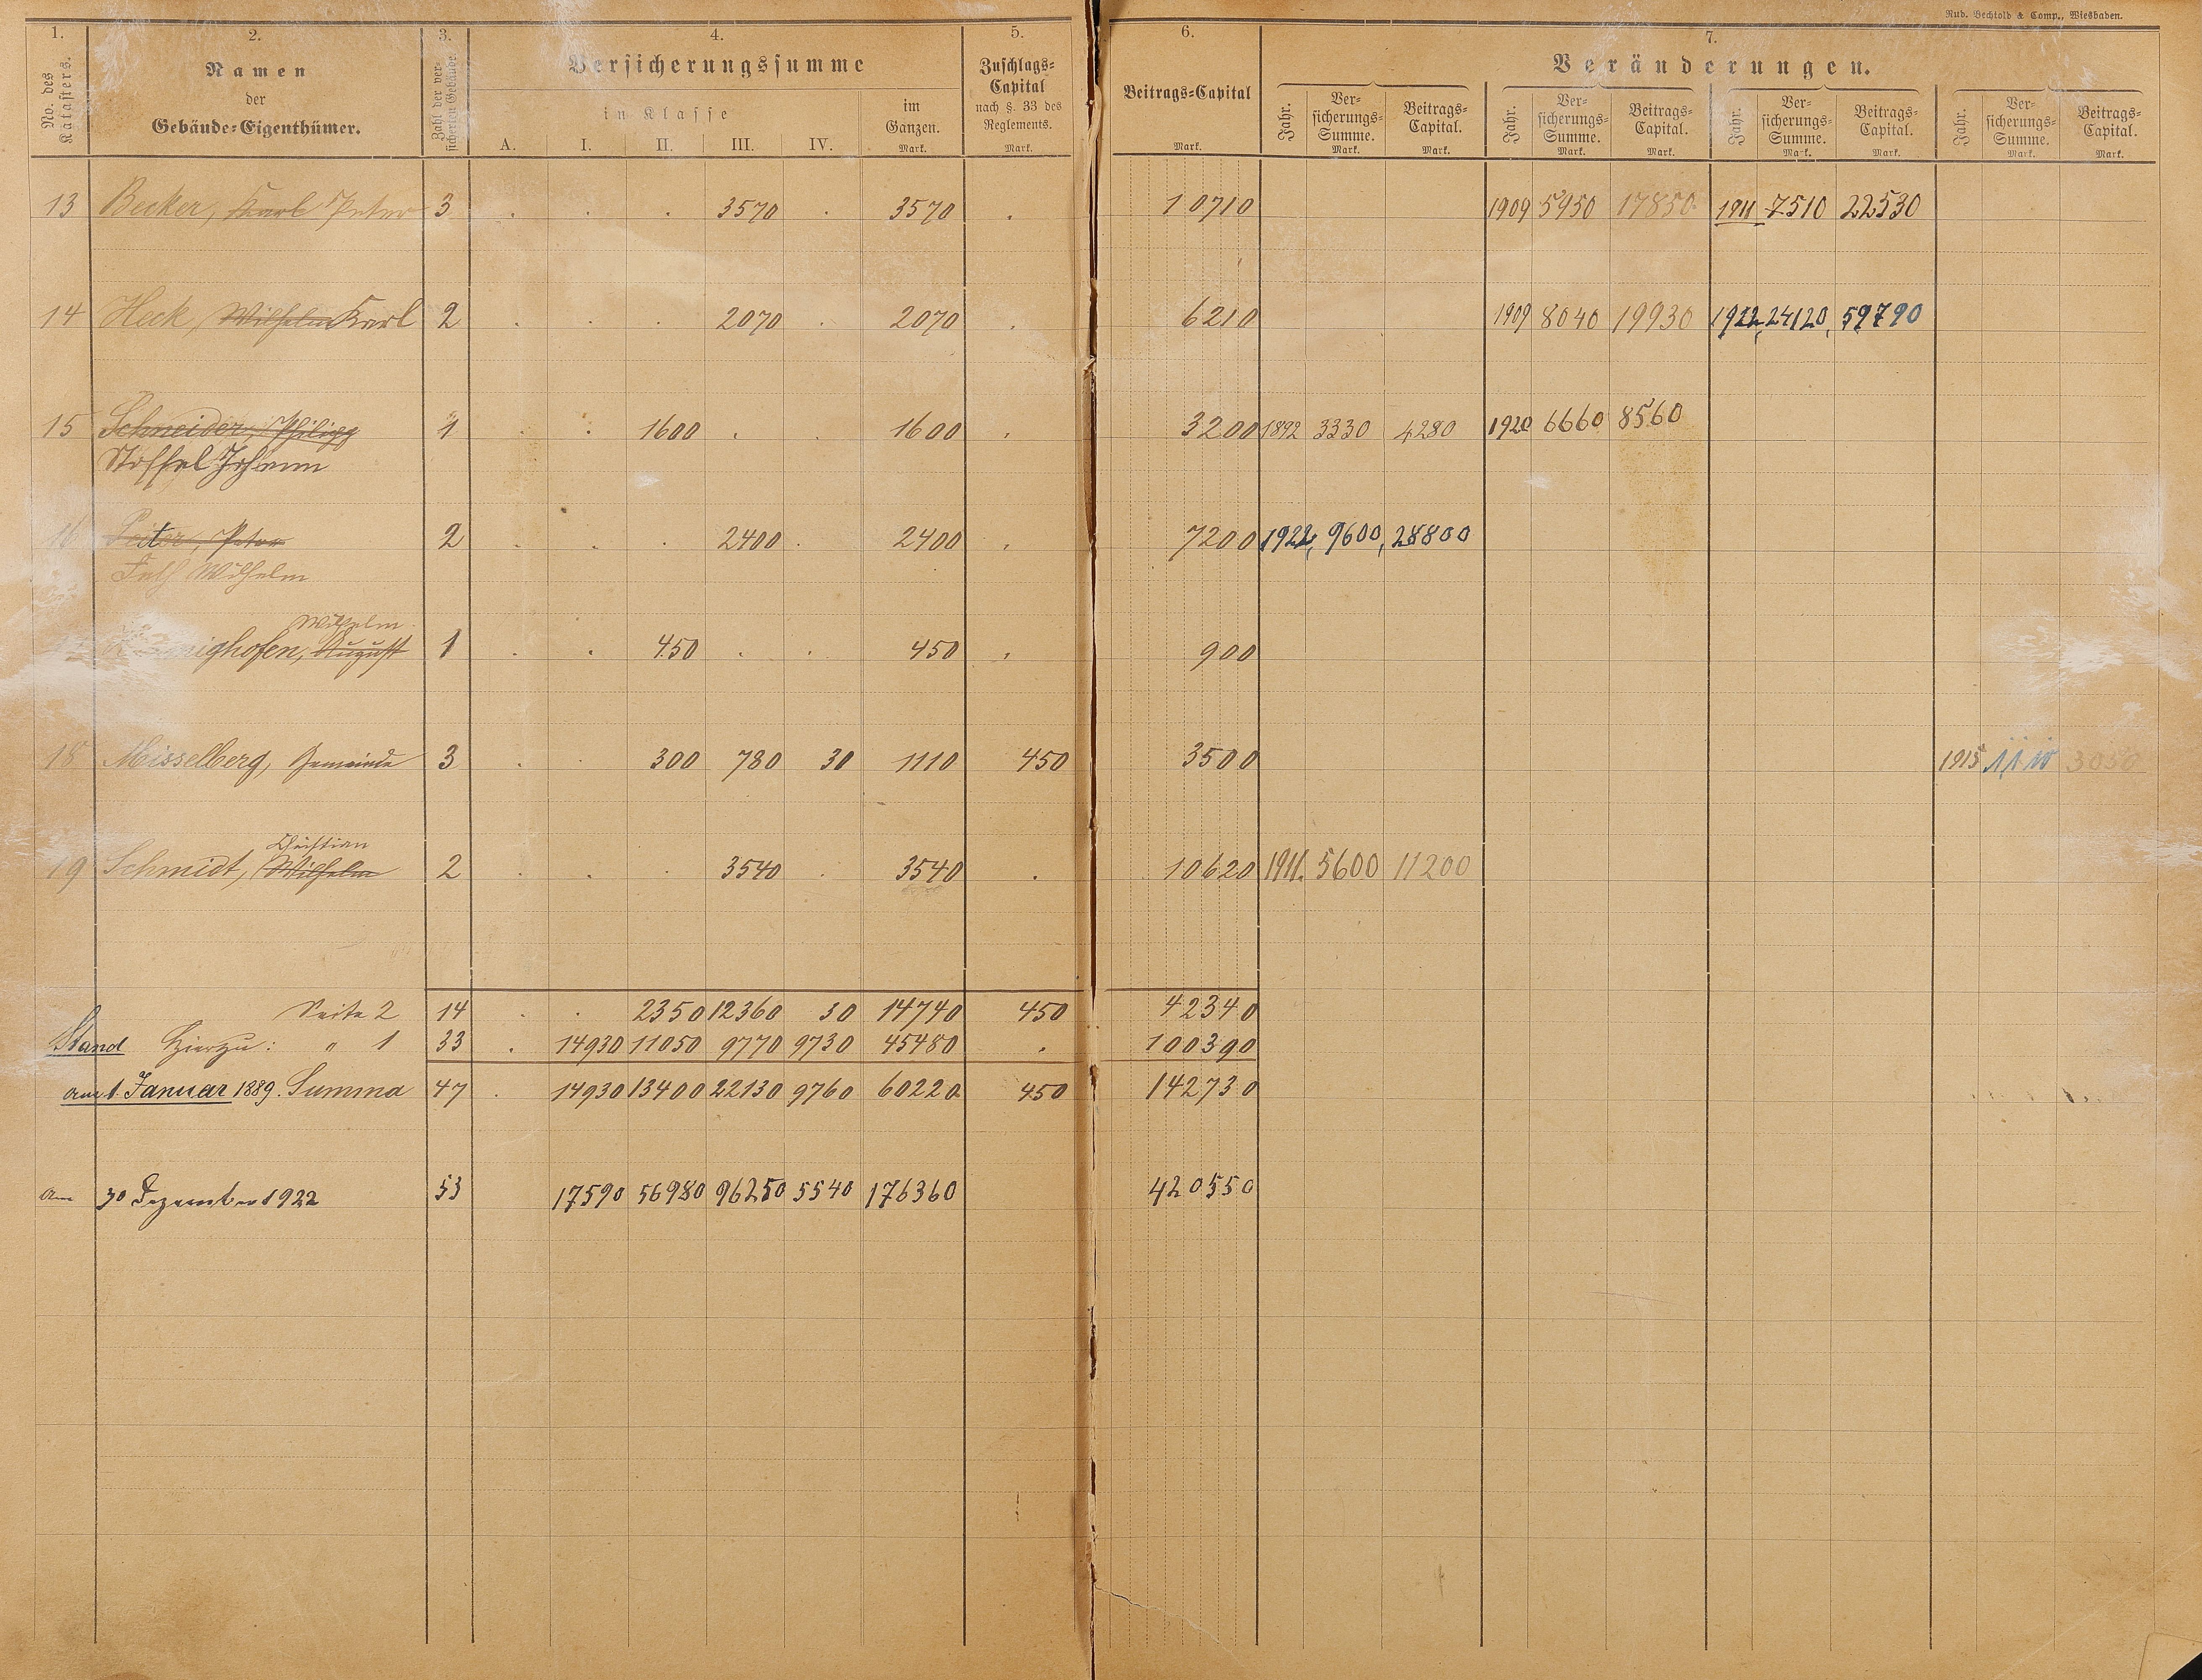 Rud. Bechtold & Comp., Wiesbaden.
1. 2. 3. 4. 5. 6. 7.
No. des Katasters.
Namen
der
Gebäude-Eigenthümer.
Zahl der versicherten Gebäude
Versicherungssumme
in Klasse
A. I. II. III. IV.
im
Ganzen.
Mark.
Zuschlags-
Capital
nach §. 33 des
Reglements.
Mark.
Beitrags-Capital
Mark.
Veränderungen.
Jahr. Ver-
sicherungs-
Summe.
Mark. Beitrags-
Capital.
Mark.
Jahr. Ver-
sicherungs-
Summe.
Mark. Beitrags-
Capital.
Mark.
Jahr. Ver-
sicherungs-
Summe.
Mark. Beitrags-
Capital.
Mark.
Jahr. Ver-
sicherungs-
Summe.
Mark. Beitrags-
Capital.
Mark.
13 Becker, Karl Peter 3 . . . 3570 . 3570 . 10710 1909 5950 17850 1911 7510 22530
14 Heck, Wilhelm Karl 2 . . . 2070 . 2070 . 6210 1909 8040 19930 1922, 24120, 59790
15 Schneider, Philipp 1 . . 1600 . . 1600 . 3200 1892 3330 4280 1920 6660 8560
Stoffel Johann
16 Peter 2 . . . 2400 . 2400 . 7200 1922, 9600, 28800
Wilhelm
Wilhelm
ighofen, August 1 . . 450 . . 450 . 900
18 Misselberg, Gemeinde 3 . . 300 780 30 1110 450 3500 1915 3050
Christian
19 Schmidt, Wilhelm 2 . . . 3540 . 3540 . 10620 1911. 5600 11200
Seite 2 14 . . 2350 12360 30 14740 450 42340
Stand Hierzu: " 1 33 . 14930 11050 9770 9730 45480 . 100390
am 1. Januar 1889. Summa 47 . 14930 13400 22130 9760 60220 450 142730
am 30 Dezember 1922 53 17590 56980 96250 5540 176360 420550